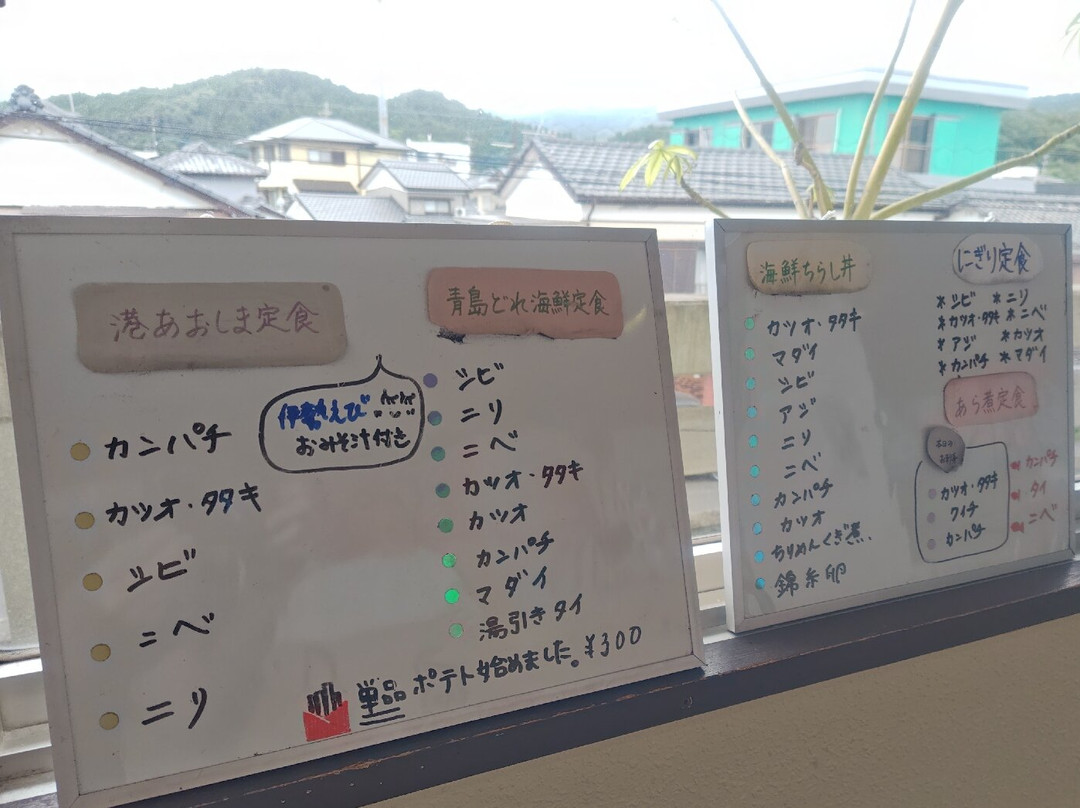 港あおしま定食
カンパチ
カツオ・タタキ
シビ
ニベ
ニリ
伊勢えび
おみそ汁付き
青島どれ海鮮定食
シビ
ニリ
ニベ
カツオ・タタキ
カツオ
カンパチ
マダイ
湯引きタイ
単品 ポテト始めました。¥300
海鮮ちらし丼
カツオ・タタキ
マダイ
シビ
アジ
ニリ
ニベ
カンパチ
カツオ
ちりめんくぎ煮.
錦糸卵
にぎり定食
*シビ *ニリ
*カツオ・タタキ *ニベ
*アジ *カツオ
*カンパチ *マダイ
あら煮定食
カツオ・タタキ
カンパチ
カンパチ
タイ
ニベ